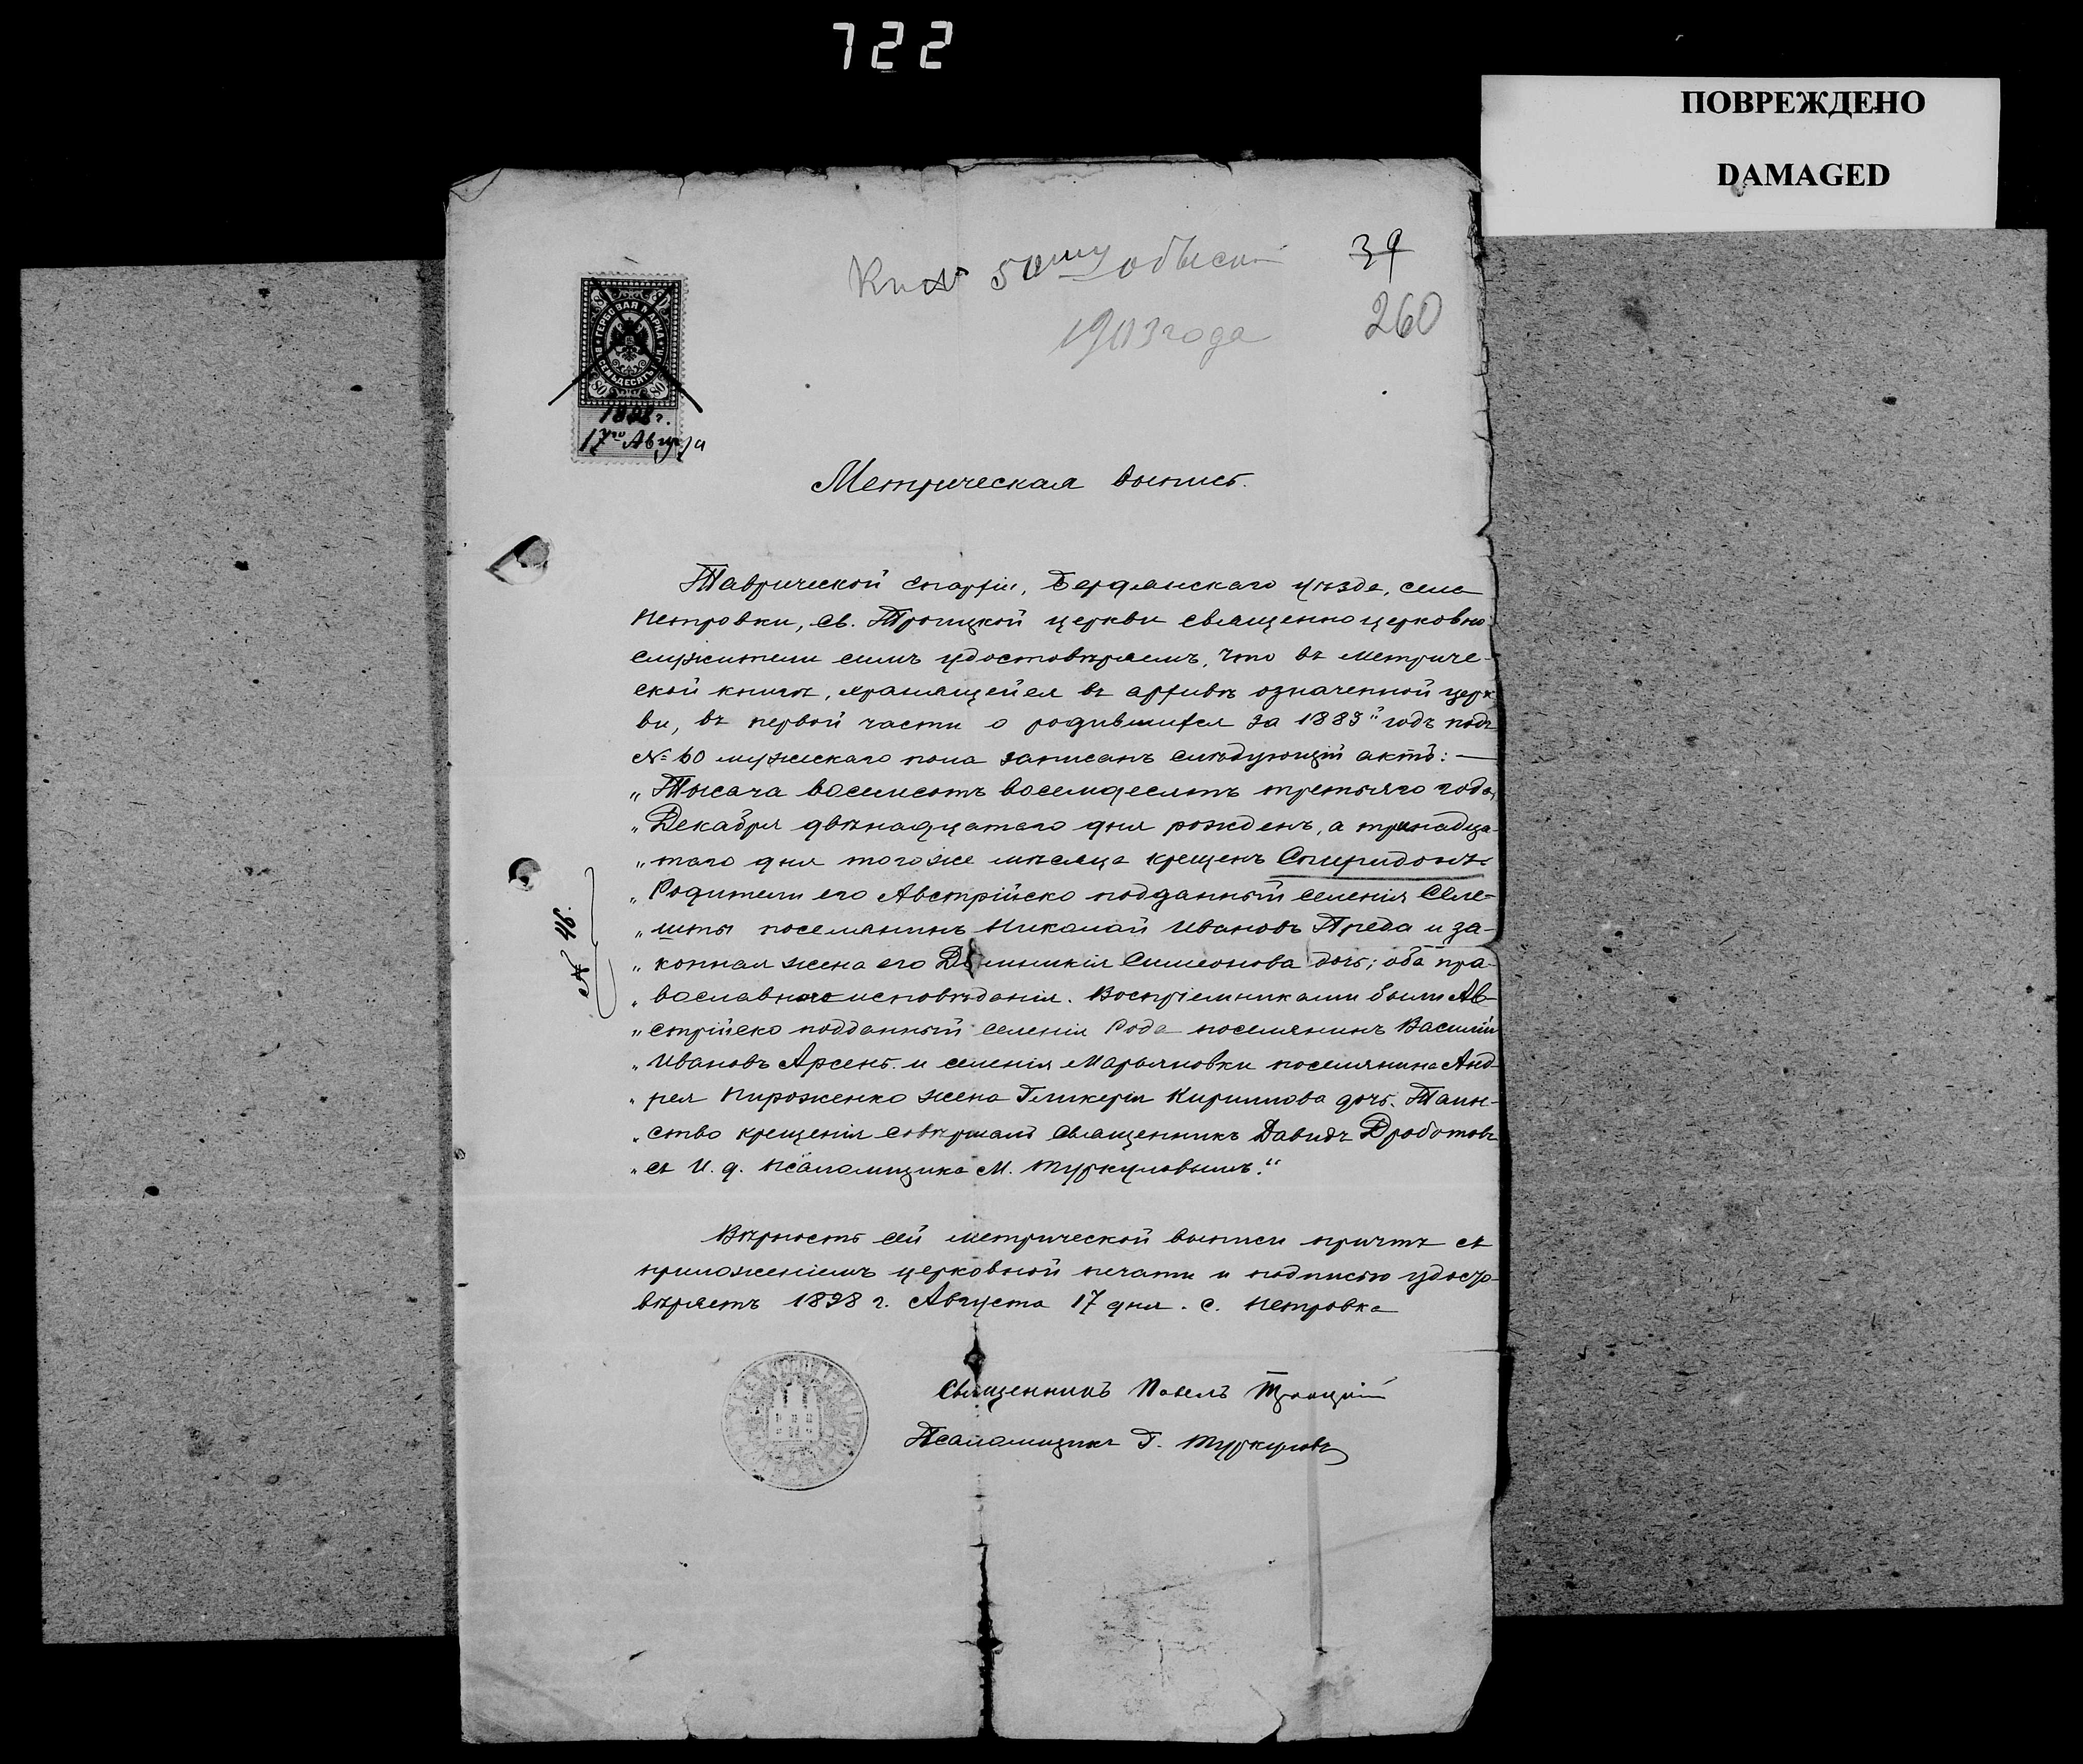 722
ПОВРЕЖДЕНО
DAMAGED
Къ № 50му обыску
39
1903 года
260
ГЕРБОВАЯ МАРКА
80 80
1898 г.
17го Августа
Метрическая выпись.
Таврической епархіи, Бердянскаго уѣзда, села
Петровки, Св. Троицкой церкви священно церковно
служители симъ удостовѣряемъ, что въ метриче-
ской книгѣ, хранящейся въ архивѣ означенной церк
ви, въ первой части о родившихся за 1883й годъ подъ
№ 60 мужескаго пола записанъ слѣдующій актъ: —
„Тысяча восемсотъ восемдесятъ третьяго года,
„Декабря двѣнадцатаго дня рожденъ, а тринадца-
„таго дня тогоже мѣсяца крещенъ Спиридонъ.
„Родители его Австрійско подданный селенія Селе-
„шты поселянинъ Николай Ивановъ Преда и за-
„конная жена его Симеонова дочь; оба пра-
„вославнаго исповѣданія. Воспріемниками были Ав-
„стрійско подданный селенія Рода поселянинъ Василій
„Ивановъ Арсень и селенія Марьяновки поселянина Анд-
„рея Пироженко жена Гликерія Кириллова дочь. Таин-
„ство крещенія совершалъ священникъ Давидъ Дроботовъ
„съ И. д. псаломщика М. Туркуловымъ.“
№ 46.
Вѣрность сей метрической выписи причтъ съ
приложеніемъ церковной печати и подписью удосто-
вѣряетъ 1898 г. Августа 17 дня. с. Петровка
Священникъ Павелъ Троицкій
Псаломщикъ Г. Туркуловъ